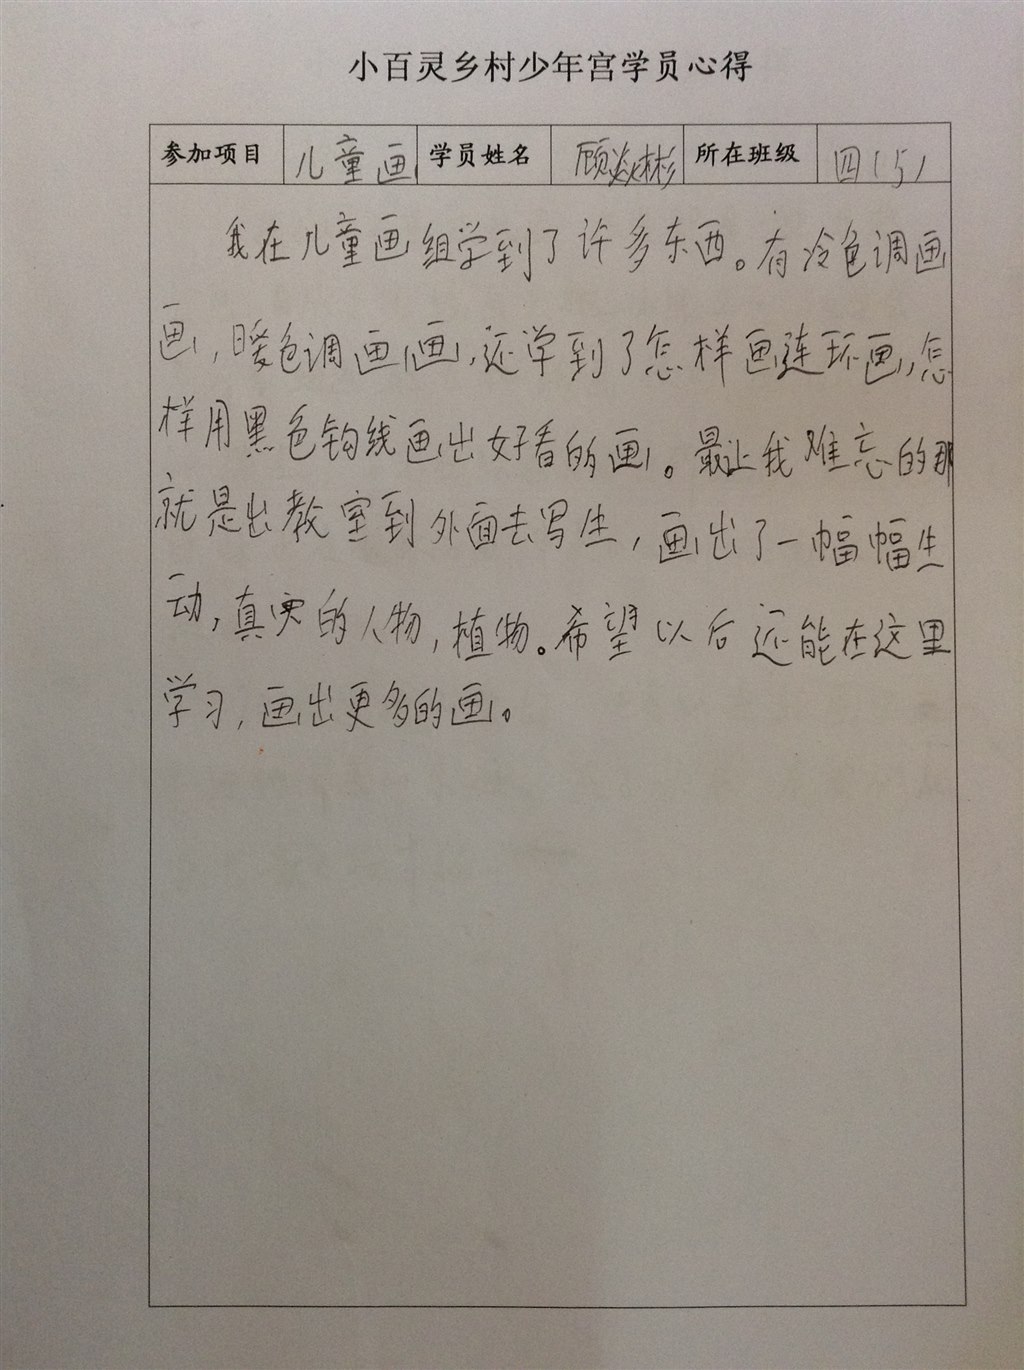 小百灵乡村少年宫学员心得
参加项目 儿童画 学员姓名 顾焱彬 所在班级 四(5)
我在儿童画组学到了许多东西。有冷色调画
画,暖色调画画,还学到了怎样画连环画,怎
样用黑色钩线画出好看的画。最让我难忘的那
就是出教室到外面去写生,画出了一幅幅生
动,真实的人物,植物。希望以后还能在这里
学习,画出更多的画。